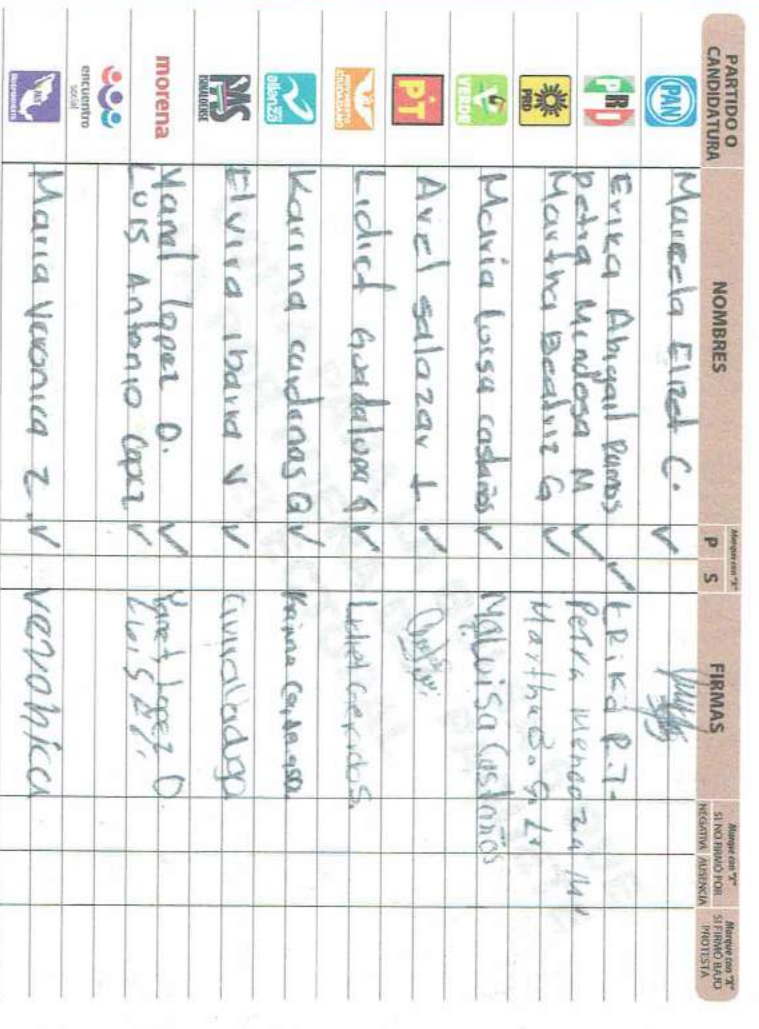 PARTIDO O CANDIDATURA NOMBRES Marque con "X" P S FIRMAS Marque con "X" SI NO FIRMÓ POR NEGATIVA AUSENCIA Marque con "X" SI FIRMÓ BAJO PROTESTA
PAN Marcela Elizet C.
PRI Erika Abigail Ramos ERiKa R.T.
Petra Mendosa M Petra Mendoza M
PRD Martha Beatriz G Martha B. G. L
VERDE Maria Luisa castaños Ma Luisa Castaños
PT Ariel salazar L
MOVIMIENTO CIUDADANO Lidiet Guadalupe G
nueva alianza Karina cardenas Q Karina Cardenas
PAS SINALOENSE Elvira ibarra V
morena Yanet Lopez O. Yanet Lopez O
Luis Antonio Lopez
encuentro social
Maria Veronica Z. veronica